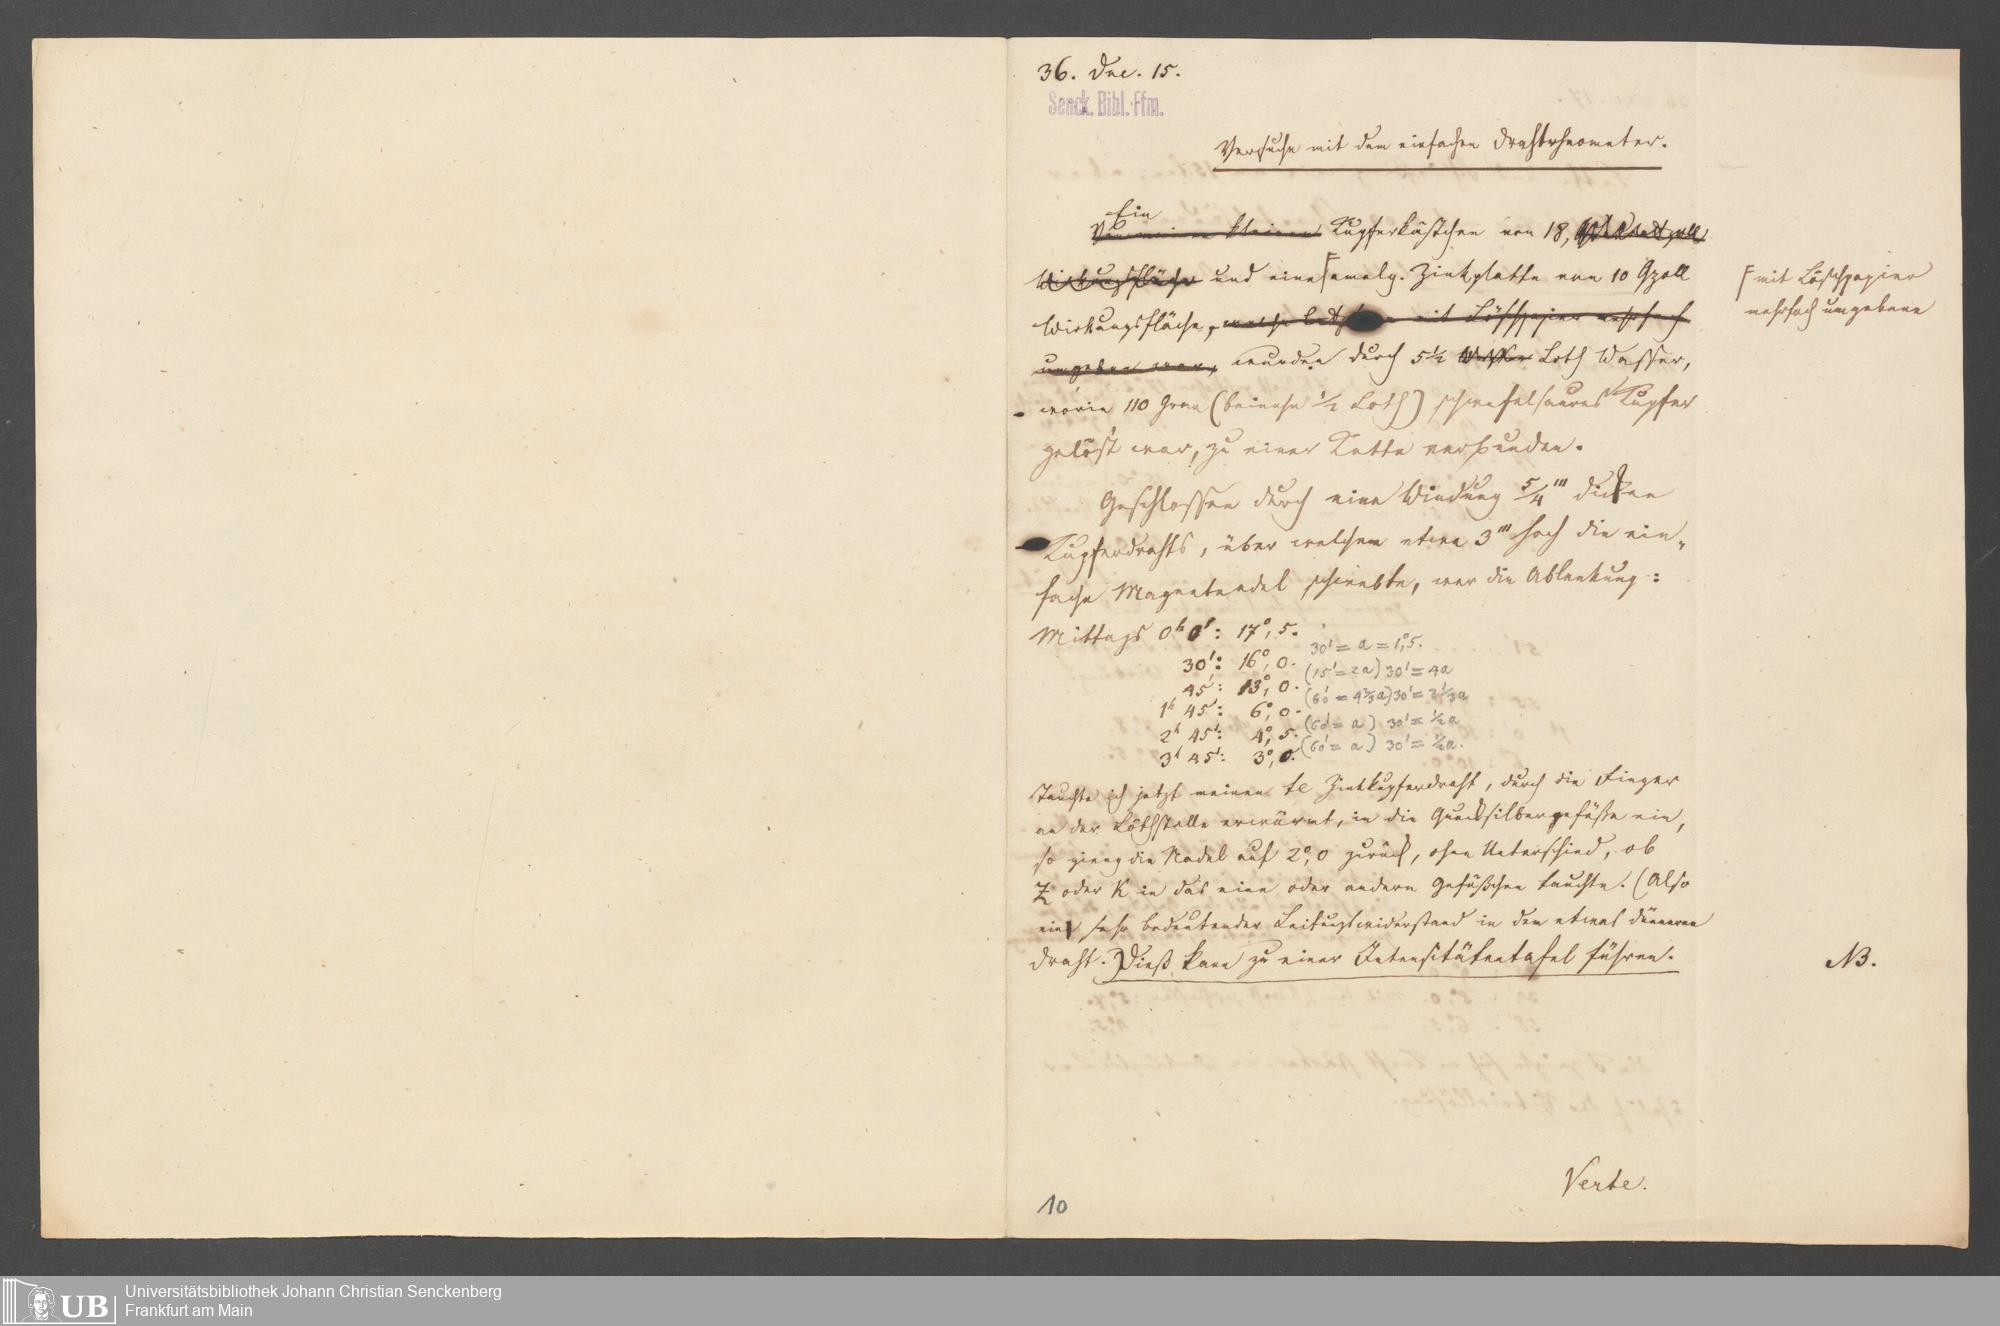 36. Dec. 15.
Senck. Bibl. Ffm.
Versuche mit dem einfachen Drahtrheometer.
Ein
kleinen Kupferkästchen von 18, Quadratzoll
Wirkungsfläche und eine amalg. Zinkplatte von 10 Qzoll
mit Löschpapier
mehrfach umgebene
Wirkungsfläche, welche letztere mit Löschpapier mehrfach
umgeben war, wurden durch 5½ Loth Wasser,
worin 110 Gran (beinahe ½ Loth) schwefelsaures Kupfer
gelöst war, zu einer Kette verbunden.
Geschlossen durch eine Windung 5/4''' dicken
Kupferdrahts, über welchem etwa 3''' hoch die ein-
fache Magnetnadel schwebte, war die Ablenkung:
Mittags 0h 0': 17°,5.
30': 16°,0. 30' = a = 1°,5.
45': 13°,0. (15' = 2a) 30' = 4a
1h 45': 6°,0. (60' = 4⅔a) 30' = 2⅓a
2h 45': 4°,5. (60' = a) 30' = ½a
3h 45': 3°,0. (60' = a) 30' = ½a.
Tauchte ich jetzt meinen te Zinkkupferdraht, durch die Finger
an der Löthstelle erwärmt, in die Quecksilbergefäße ein,
so gieng die Nadel auf 2°,0 zurück, ohne Unterschied, ob
Z oder K in das eine oder andere Gefäßchen tauchte. (Also
ein sehr bedeutender Leitungswiderstand in dem etwas dünneren
Draht.) Dieß kann zu einer Intensitätentafel führen.
NB.
Verte.
10
UB
Universitätsbibliothek Johann Christian Senckenberg
Frankfurt am Main